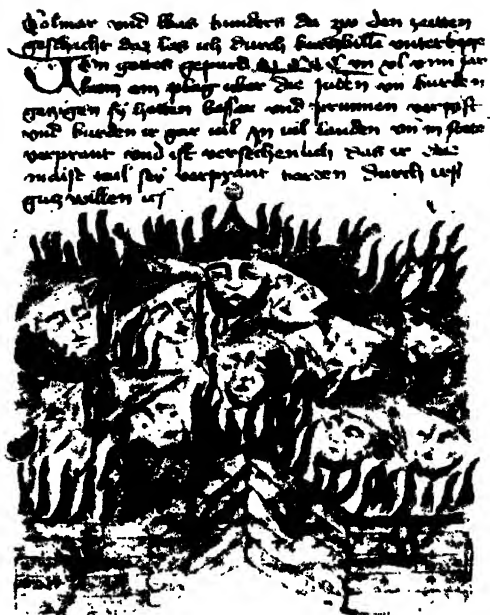 Colmar vnd was bunders da zw den zeitten
geschicht daz las ich durch kurczbill vnterbege
gottes gepurd vn xl jar
kam ain plag über die juden vn burden
gezigen sy hetten basser vnd prunnen vergift
vnd burden er gar uil In uil landen vn in stete
verprant vnd ist versechenlich das er die
maist tail sey verprant borden durch irss
gutz willen